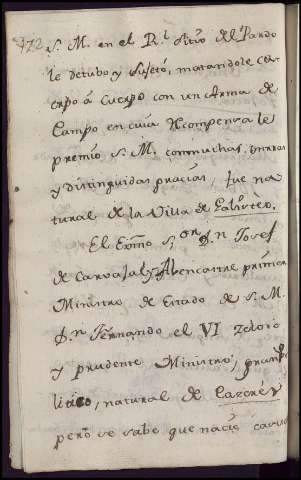 172
S. M. en el R.l Sitio del Pardo
le detubo y sujetó, matandole cu-
erpo á cuerpo con un Arma de
Campo en cuia Recompensa le
premio S. M. con muchas, honrras
y distinguidas gracias, fue na
tural de la Villa de
El Exmo S.or D.n Josef
de Carvajal, y Alencastre primer
Ministro de Estado de S. M.
D.n Fernando el VI zeloso
y prudente Ministro,
natural de Cazeres
pero se sabe que nacio casu